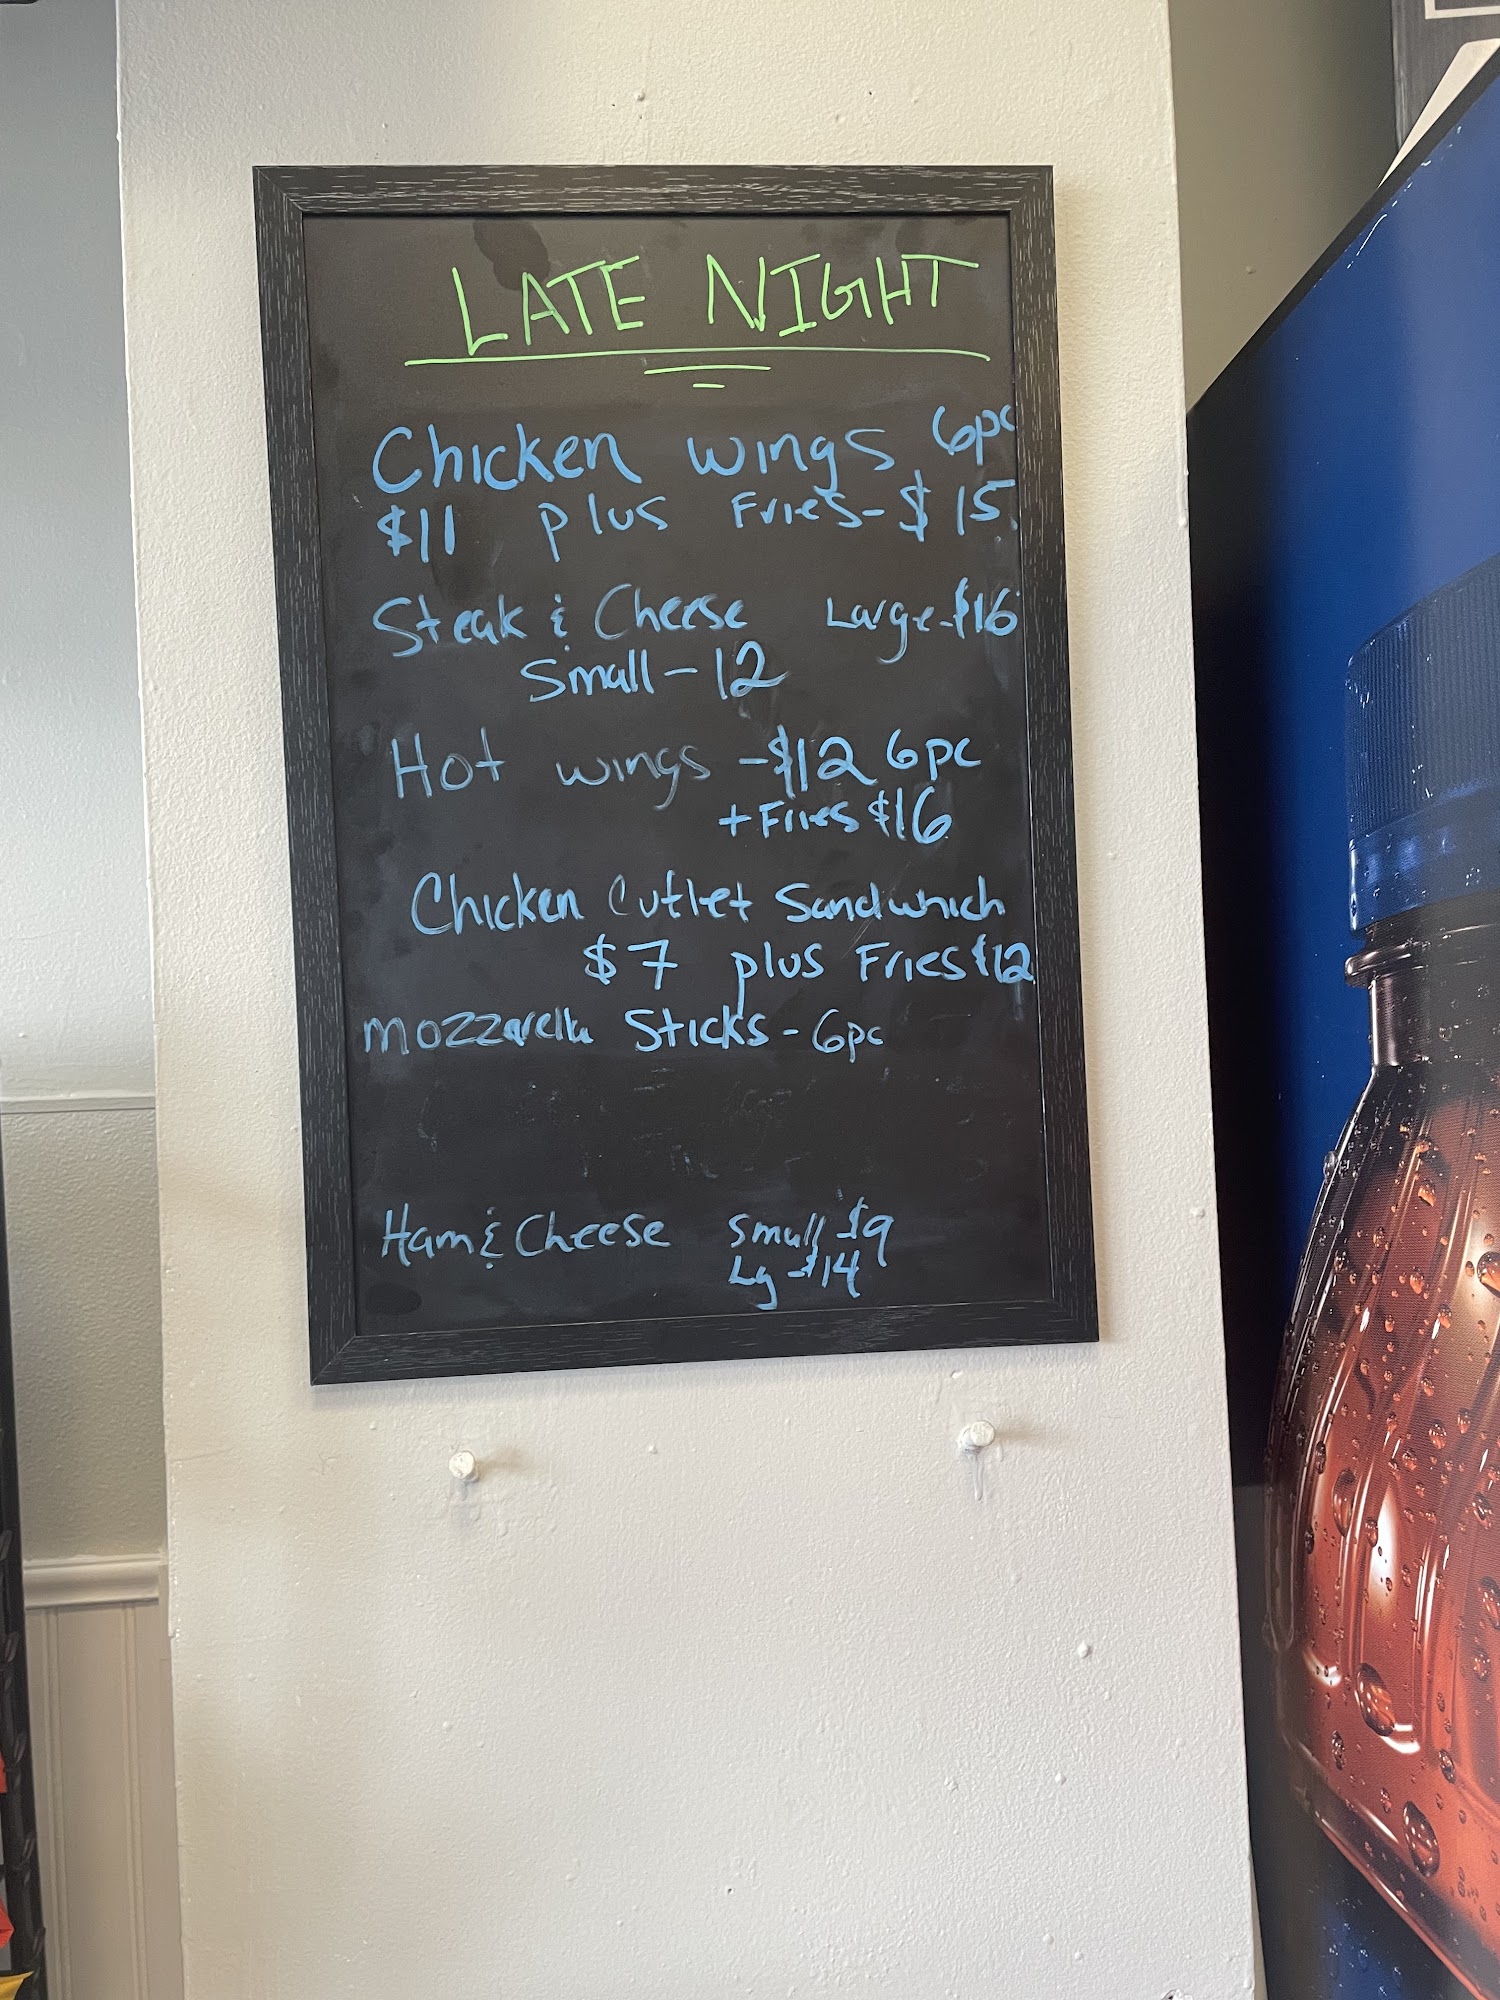 LATE NIGHT
Chicken wings 6pc
$11 plus Fries-$15
Steak & Cheese Large-$16
Small-12
Hot wings -$12 6pc
+Fries $16
Chicken Cutlet Sandwhich
$7 plus Fries $12
mozzarella Sticks-6pc
Ham & Cheese Small-$9
Lg-$14